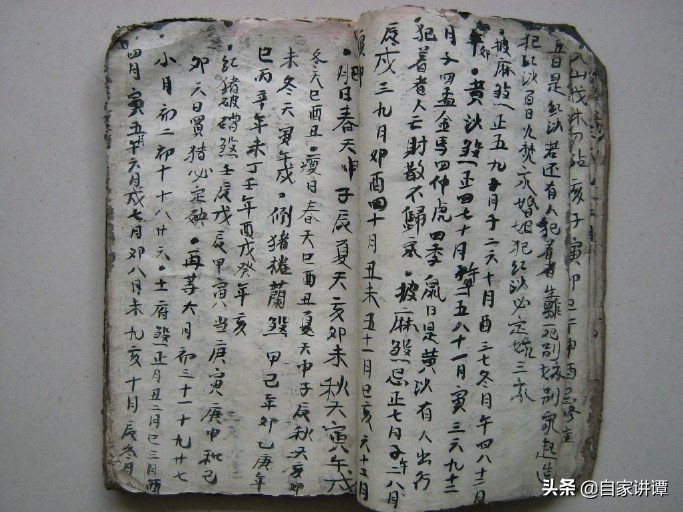 凶山伐木四點 亥子寅卯巳午申酉
五日是紅沙若还有人犯着者生離死别嫁别家起造
犯紅沙百日火焚家婚姻犯紅沙必定嫁三家
·披麻煞正五九月子二六十月酉三七冬月午四八十二月
卯·黄沙煞正四七十月午二五八十一月寅三六九十二
月子四孟金馬四仲虎四季鼠日是黄沙有人出行
犯着者人亡財散不歸家·披麻煞忌正七月子午二八月
辰戌三九月卯酉四十月丑未五十一月巳亥六十二月
寅申
·月日春天申子辰夏天亥卯未秋天寅午戌
冬天巳酉丑·瘦日春天巳酉丑夏天申子辰秋天亥卯
未冬天寅午戌·倒猪捲蘭煞甲己年卯乙庚年
巳丙辛年未丁壬年酉戊癸年亥
·紅猪破碎煞壬辰戊辰甲寅八当庚寅庚申和己
卯六日買猪必定敏·再等大月初三十一十九廿七
·小月初二初十十八廿六·土府煞正月丑二月巳三月酉
四月寅五月午六月戌七月卯八月未九亥十月辰冬月
头条 @自家讲谭